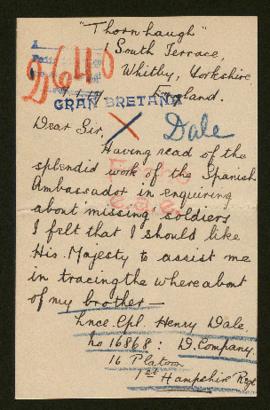 "Thornhaugh"
1 South Terrace,
Whitby, Yorkshire
England.
2640
GRAN BRETAÑA
Dear Sir,
Dale
Having read of the
splendid work of the Spanish
Ambassador in enquiring
about missing soldiers
I felt that I should like
His Majesty to assist me
in tracing the where about
of my brother —
Lnce. Cpl. Henry Dale.
No 16868: D. Company.
16 Platoon
1st Hampshire Regt